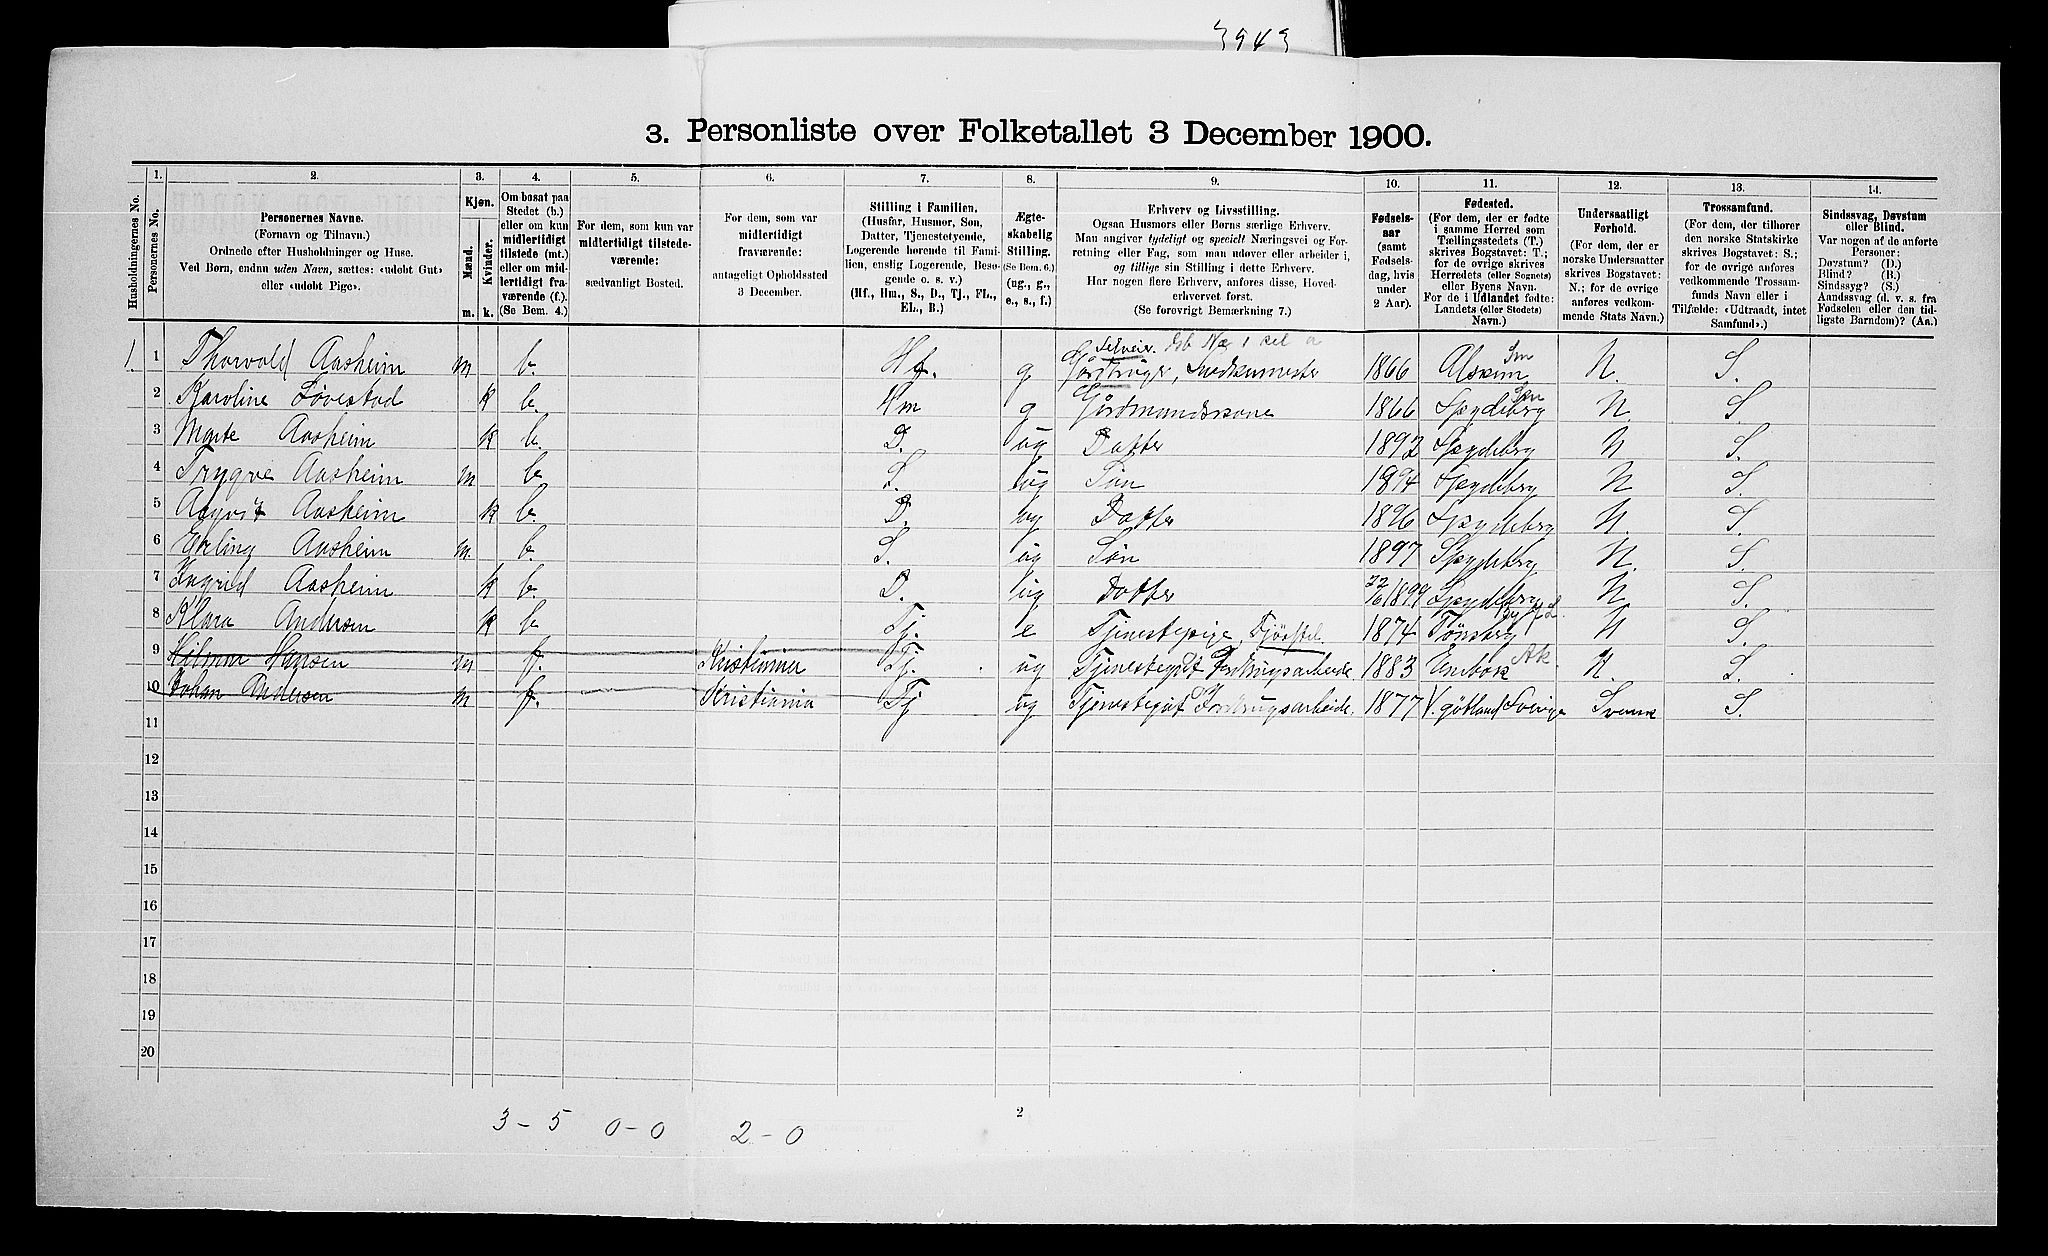 3943
3. Personliste over Folketallet 3 December 1900.
1. 2. 3. 4. 5. 6. 7. 8. 9. 10. 11. 12. 13. 14.
Husholdningernes No.
Personernes No.
Personernes Navne.
(Fornavn og Tilnavn.)
Ordnede efter Husholdninger og Huse.
Ved Børn, endnu uden Navn, sættes: «udøbt Gut»
eller «udøbt Pige».
Kjøn.
Mænd.
Kvinder.
m. k.
Om bosat paa
Stedet (b.)
eller om kun
midlertidigt
tilstede (mt.)
eller om mid-
lertidigt fra-
værende (f.).
(Se Bem. 4.)
For dem, som kun var
midlertidigt tilstede-
værende:
sædvanligt Bosted.
For dem, som var
midlertidigt
fraværende:
antageligt Opholdssted
3 December.
Stilling i Familien.
(Husfar, Husmor, Søn,
Datter, Tjenestetyende,
Logerende hørende til Fami-
lien, enslig Logerende, Besø-
gende o. s. v.)
(Hf., Hm., S., D., Tj., FL.,
EL., B.)
Ægte-
skabelig
Stilling.
(Se Bem. 6.)
(ug., g.,
e., s., f.)
Erhverv og Livsstilling.
Ogsaa Husmors eller Børns særlige Erhverv.
Man angiver tydeligt og specielt Næringsvei og For-
retning eller Fag, som man udøver eller arbeider i,
og tillige sin Stilling i dette Erhverv.
Har nogen flere Erhverv, anføres disse, Hoved-
erhvervet først.
(Se forøvrigt Bemærkning 7.)
Fødsels-
aar
(samt
Fødsels-
dag, hvis
under
2 Aar).
Fødested.
(For dem, der er fødte
i samme Herred som
Tællingsstedets (T.)
skrives Bogstavet: T.;
for de øvrige skrives
Herredets (eller Sognets)
eller Byens Navn.
For de i Udlandet fødte:
Landets (eller Stedets)
Navn.)
Undersaatligt
Forhold.
(For dem, der er
norske Undersaatter
skrives Bogstavet:
N.; for de øvrige
anføres vedkom-
mende Stats Navn.)
Trossamfund.
(For dem, der tilhører
den norske Statskirke
skrives Bogstavet: S.;
for de øvrige anføres
vedkommende Trossam-
funds Navn eller i
Tilfælde: «Udtraadt, intet
Samfund».)
Sindssvag, Døvstum
eller Blind.
Var nogen af de anførte
Personer:
Døvstum? (D.)
Blind? (B.)
Sindssyg? (S.)
Aandssvag (d. v. s. fra
Fødselen eller den tid-
ligste Barndom)? (Aa.)
Selveier.
1. 1 Thorvald Aasheim m b. Hf. g Gårdbruger, 1866 Sm N. S.
2 Karoline Løvestad k b. Hm g Gårdmandskone 1866 Spydeberg Sm N S
3 Marte Aasheim k b. D. ug Datter 1892 Spydeberg N S.
4 Trygve Aasheim m b S. ug Søn 1894 Spydeberg N S.
5 Aasheim k b. D. ug Datter 1896 Spydeberg N. S.
6 Erling Aasheim m. b. S. ug Søn 1897 Spydeberg N. S.
7 Ingrid Aasheim k b. D. ug Datter 22/6 1899 Spydeberg N S.
8 Klara Andersen k b Tj. e Tjenestepige, 1874 Tønsberg N S.
9 Hilmar Hansen m f. Kristiania Tj. ug Tjenestegut Gårdbrugsarbeide 1883 Enebak Ak. N. S.
10 Johan Andersen m f. Kristiania Tj ug Tjenestegut Gårdbrugsarbeide. 1877 V. gøtland Sverige Svensk S.
11
12
13
14
15
16
17
18
19
20
3 - 5 0 - 0 2 - 0
2